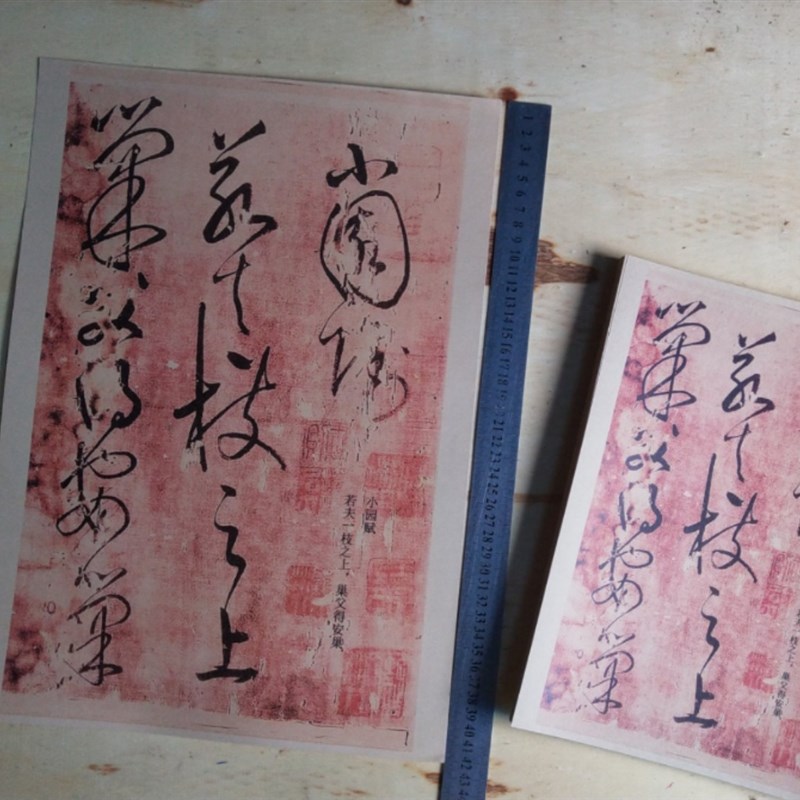 小園賦
若夫一枝之上
巢父得安巢
小园赋
若夫一枝之上，巢父得安巢、
1 2 3 4 5 6 7 8 9 10 11 12 13 14 15 16 17 18 21 22 23 24 25 26 27 28 29 30 31 32 33 34 35 36 37 38 39 40 41 42 43
若夫一枝之上
巢父得安巢
若夫一枝之上，巢父得安巢、